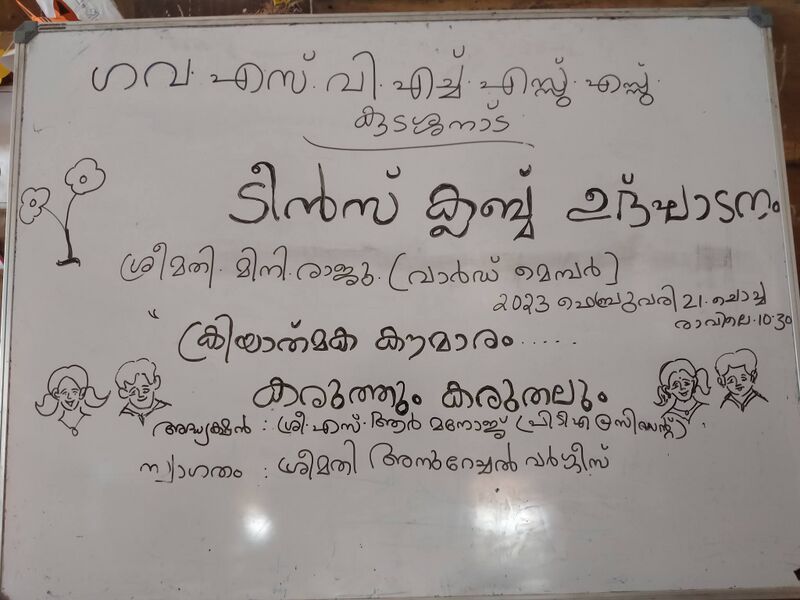 ഗവ. എസ്. വി. എച്ച്. എസ്സ്. എസ്സ്.
കുടശ്ശനാട്
ടീൻസ് ക്ലബ്ബ് ഉദ്ഘാടനം
ശ്രീമതി. മിനി. രാജു. (വാർഡ് മെമ്പർ)
2023 ഫെബ്രുവരി 21. ചൊവ്വ
രാവിലെ. 10.30
" ക്രിയാത്മക കൗമാരം ......
കരുത്തും കരുതലും
അദ്ധ്യക്ഷൻ : ശ്രീ. എസ്. ആർ മനോജ് (പി ടി എ പ്രസിഡന്റ്)
സ്വാഗതം : ശ്രീമതി അൻറേച്ചൽ വർഗ്ഗീസ്